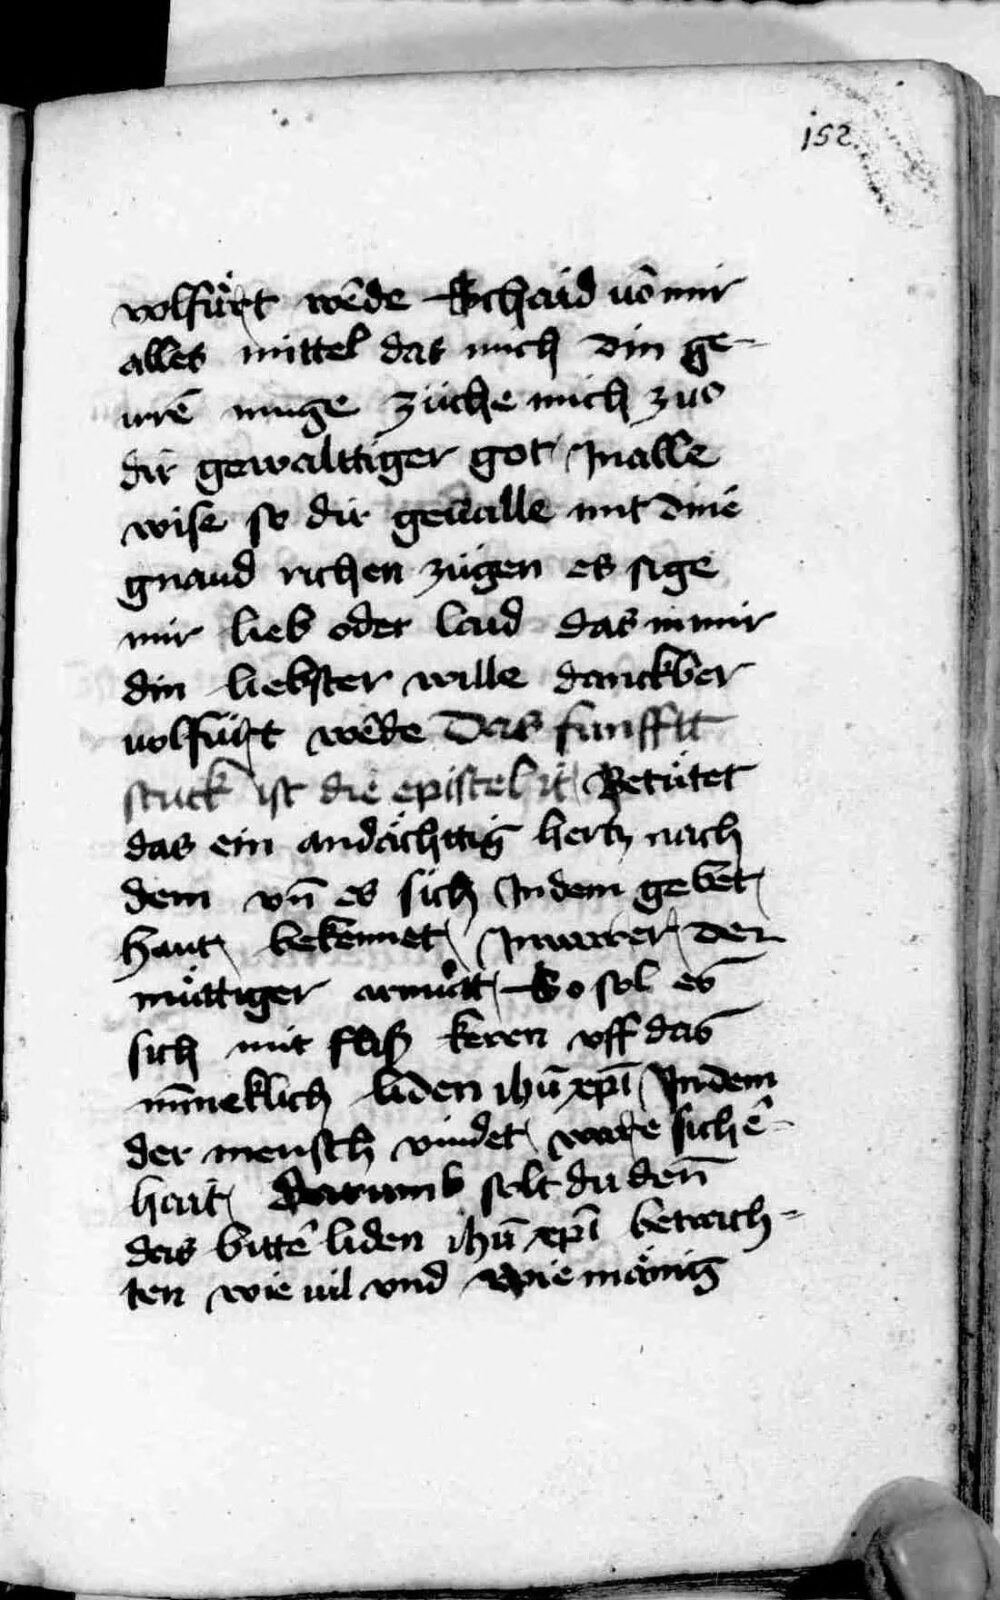 152
volfürt wēde Schaid uō mir
alles mittel das mich din ge-
irrē muge züche mich zuo
dir gewalttiger got Jn alle
wise so dir geualle mit dinē
gnaud richen zügen es sige
mir lieb oder laid das in mir
din liebster wille danckber
uolfürt wēde Das funfftt
stuck ist die epistel it Betütet
das ein andächttig hertz nach
dem vn̄ es sich Jn dem gebet
haut bekennet Jn warer der
müttiger armůtt So sol es
sich mit fliß keren vff das
mīneklich liden ihū xp̄i Jn dem
der mensch vindet ware sichē-
hait Darumb solt du den̄
das bittē liden ihū xp̄i betrach-
ten wie uil vnd wie mänig